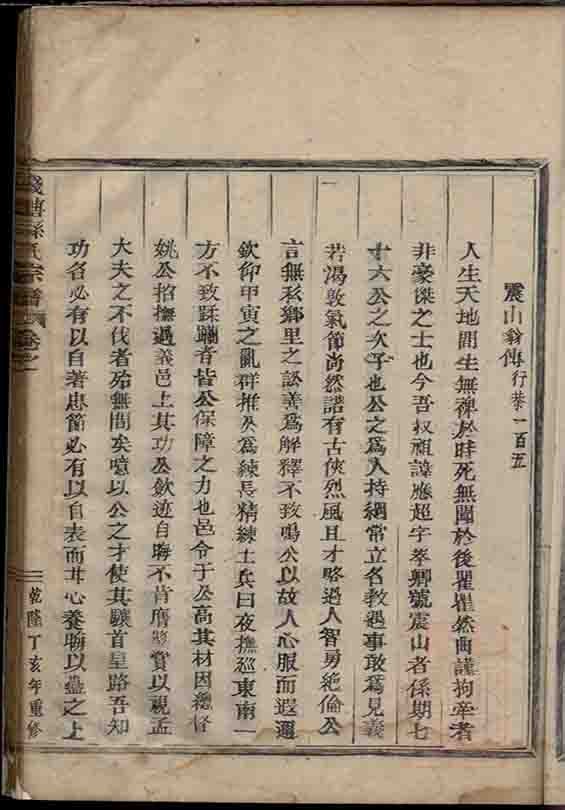 震山翁傳行棻一百五
人生天地間生無裨於時死無聞於後瞿瞿然曲謹拘牽者
非豪傑之士也今吾叔祖諱應超字奉卿號震山者係期七
十六公之次子也公之為人持綱常立名教遇事敢為見義
若渴敦氣節尚然諾有古俠烈風且才略過人智勇絕倫公
言無私鄉里之訟善為解釋不致鳴公以故人心服而遐邇
欽仰甲寅之亂群推公為練長精練士兵日夜撫巡東南一
方不致蹂躪者皆公保障之力也邑令于公高其材因總督
姚公招撫遇義邑上其功公歛迹自晦不肯膺獎賞以視孟
大夫之不伐者殆無間矣噫以公之才使其驤首皇路吾知
功名必有以自著忠節必有以自表而甘心養晦以蠱之上
孫氏宗譜 卷之一
乾隆丁亥年重修